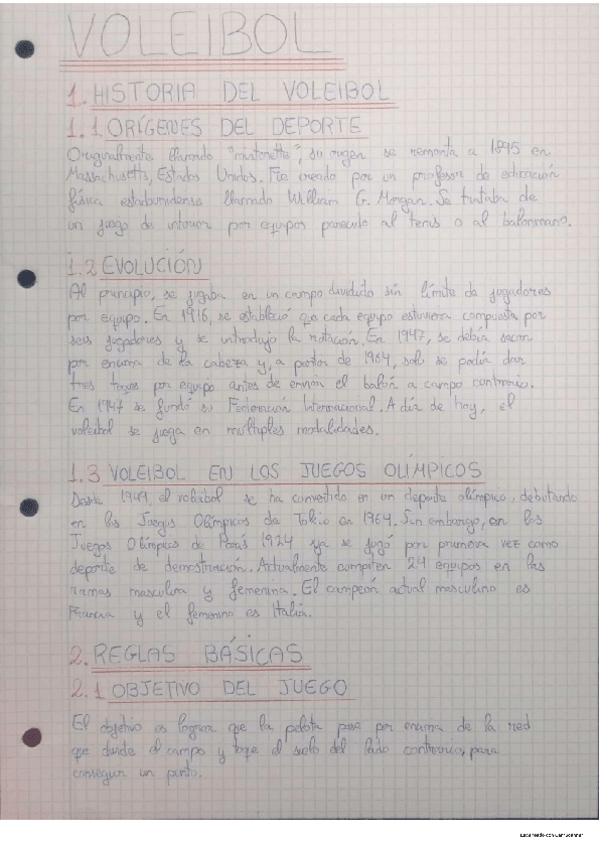 VOLEIBOL
1. HISTORIA DEL VOLEIBOL
1.1 ORÍGENES DEL DEPORTE
Originalmente llamado "mintonette", su origen se remonta a 1895 en
Massachusetts, Estados Unidos. Fue creado por un profesor de educación
física estadounidense llamado William G. Morgan. Se trataba de
un juego de interior por equipos parecido al tenis o al balonmano.
1.2 EVOLUCIÓN
Al principio, se jugaba en un campo dividido sin límite de jugadores
por equipo. En 1916, se estableció que cada equipo estuviera compuesto por
seis jugadores y se introdujo la rotación. En 1947, se debía sacar
por encima de la cabeza y, a partir de 1964, solo se podía dar
tres toques por equipo antes de enviar el balón a campo contrario.
En 1947 se fundó su Federación Internacional. A día de hoy, el
voleibol se juega en múltiples modalidades.
1.3 VOLEIBOL EN LOS JUEGOS OLÍMPICOS
Desde 1949, el voleibol se ha convertido en un deporte olímpico, debutando
en los Juegos Olímpicos de Tokio en 1964. Sin embargo, en los
Juegos Olímpicos de París 1924 ya se jugó por primera vez como
deporte de demostración. Actualmente compiten 24 equipos en las
ramas masculina y femenina. El campeón actual masculino es
Francia y el femenino es Italia.
2. REGLAS BÁSICAS
2.1 OBJETIVO DEL JUEGO
El objetivo es lograr que la pelota pase por encima de la red
que divide el campo y toque el suelo del lado contrario, para
conseguir un punto.